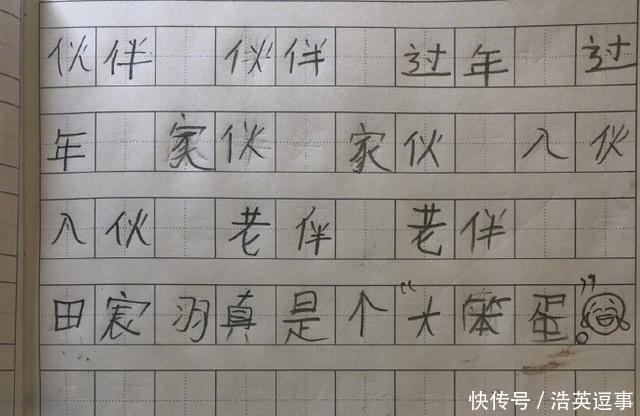 伙伴 伙伴 过年 过
年 家伙 家伙 入伙
入伙 老伴 老伴
田宸羽真是个“大笨蛋”
快传号/浩英逗事